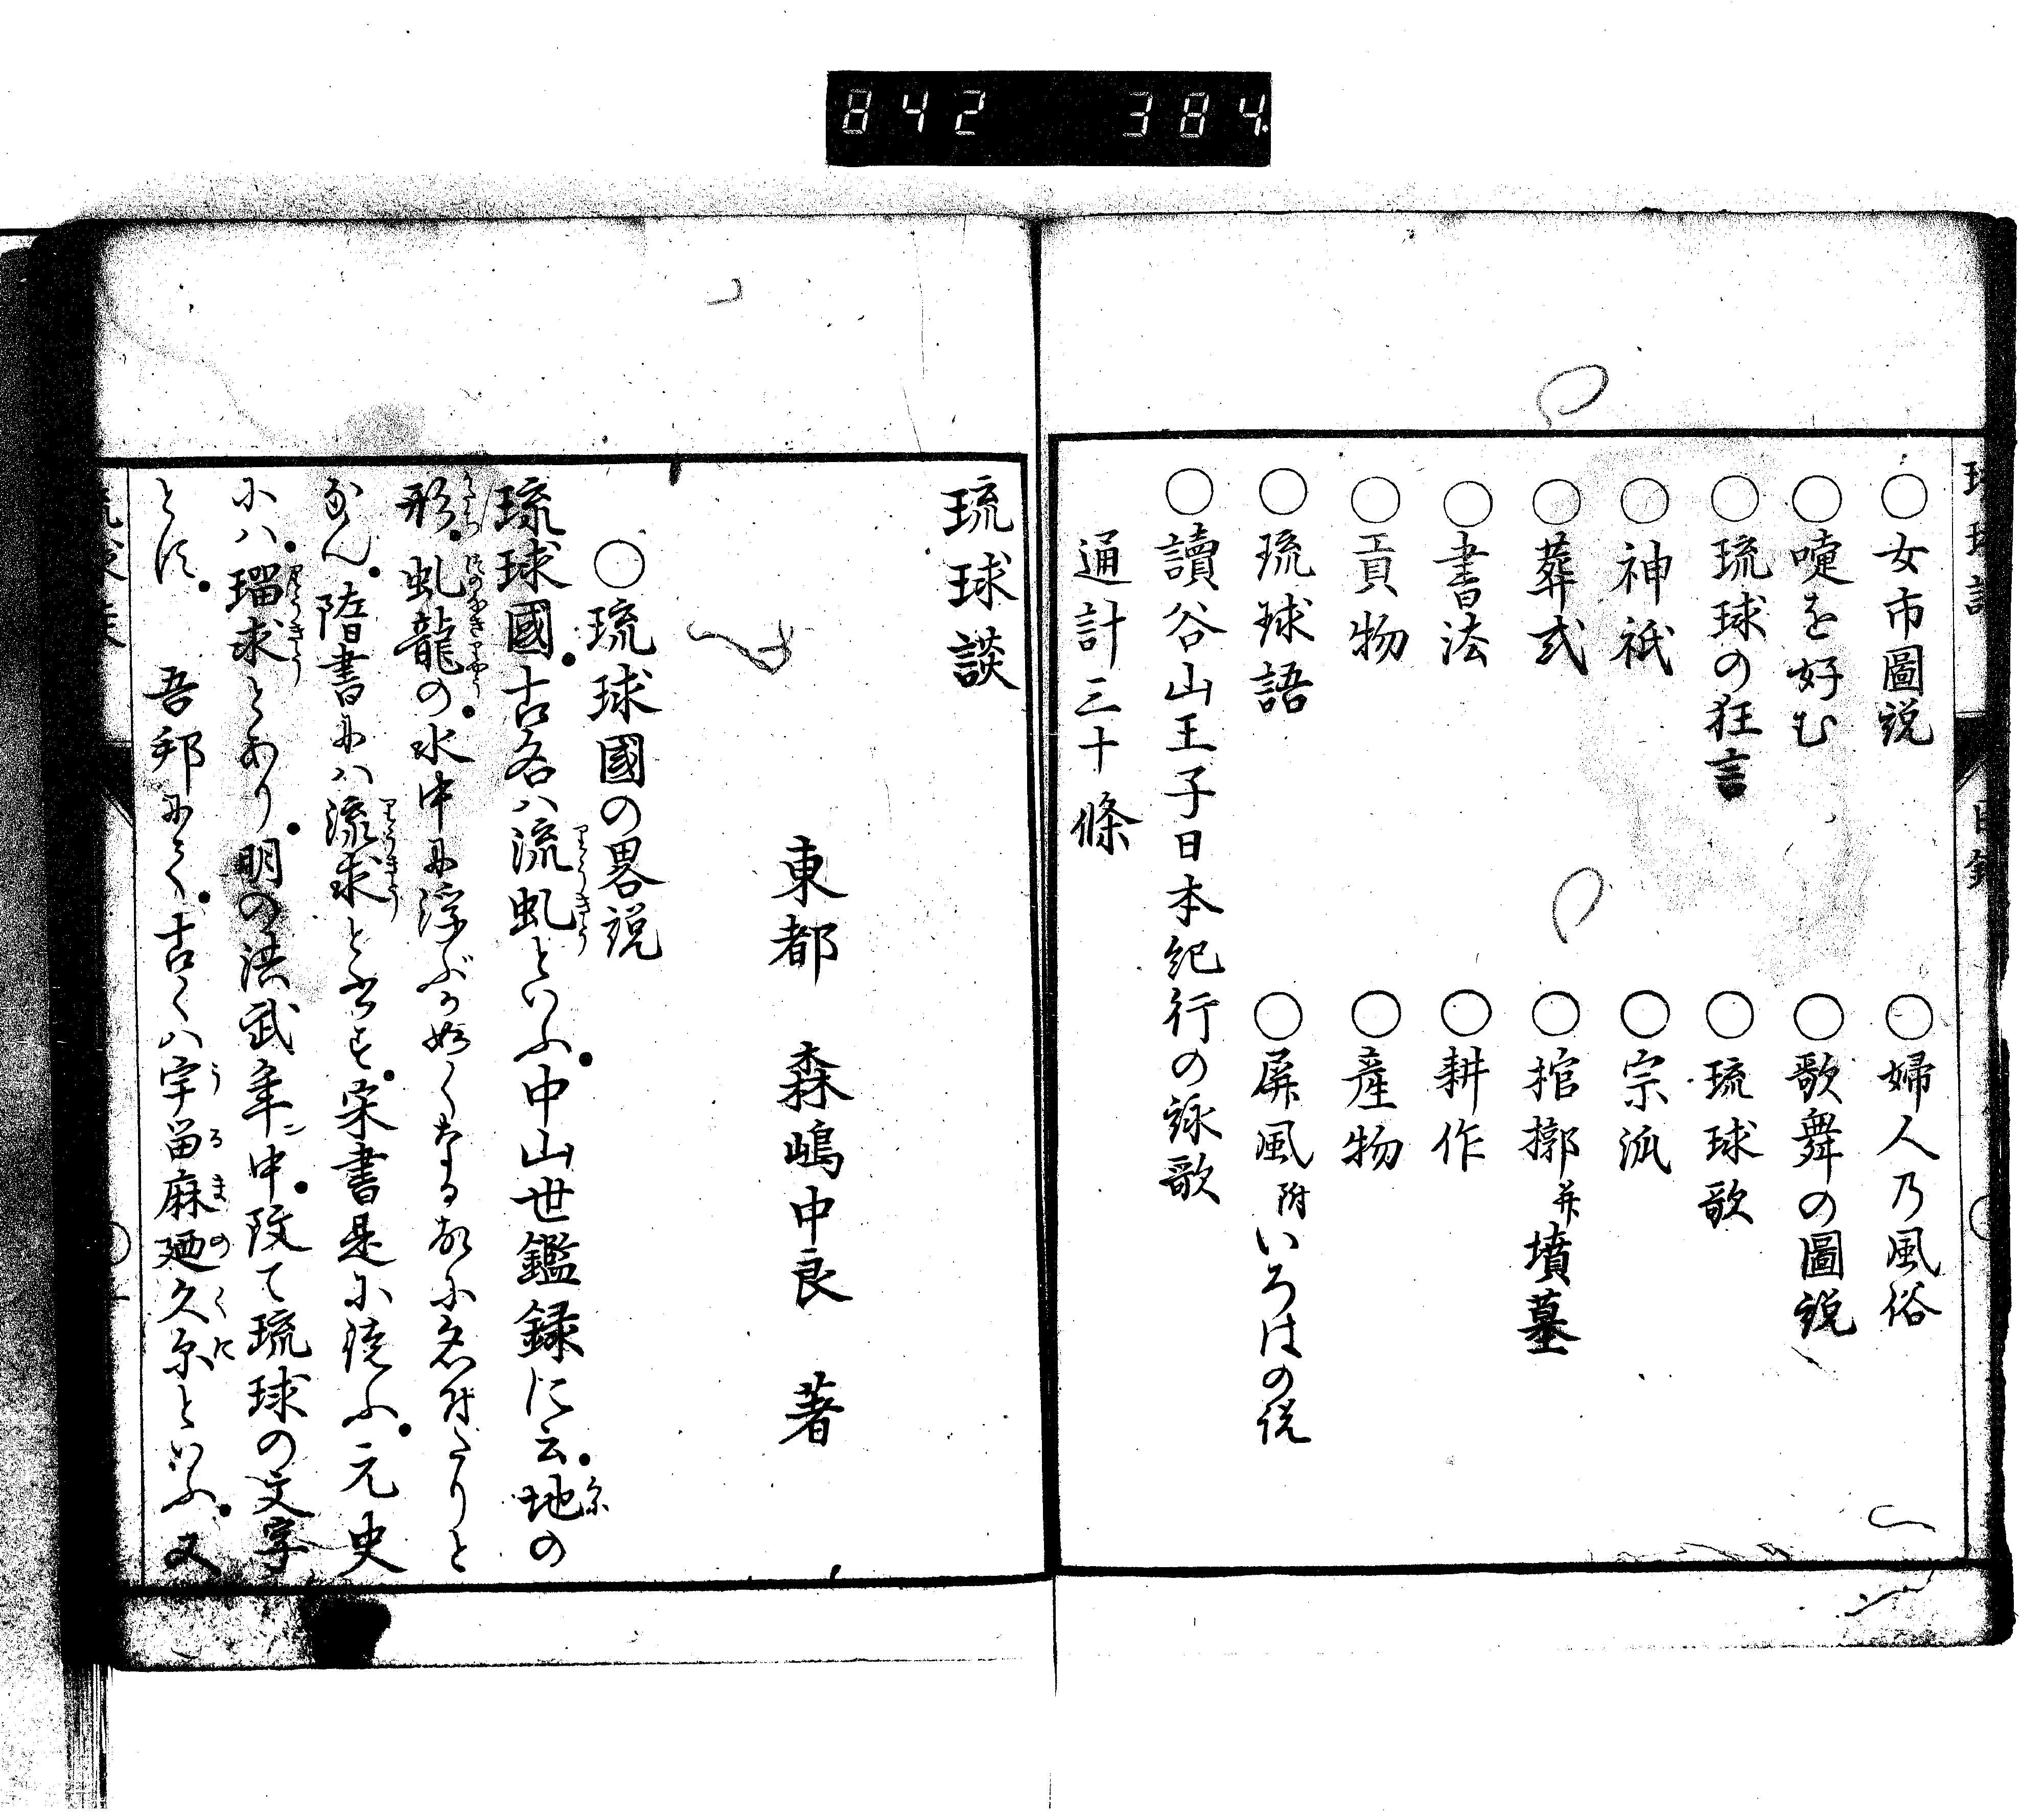 842 384
○女市圖説
○婦人乃風俗
○嚏を好む
○歌舞の圖説
○琉球の狂言
○琉球歌
○神祇
○宗派
○葬式
○棺槨并墳墓
○書法
○耕作
○貢物
○産物
○琉球語
○屏風附いろはの説
○讀谷山王子日本紀行の詠歌
通計三十條
琉球談
東都 森嶋中良 著
○琉球國の畧説
琉球國古名ハ流虬といふ中山世鑑録に云地の
形虬龍の水中に浮ぶが如くなる故に名付たりと
なん隋書にハ流求と書す宋書是に従ふ元史
にハ瑠求とあり明の洪武年中改て琉球の文字
とす 吾邦にて古くハ宇留麻廼久尓といふ又